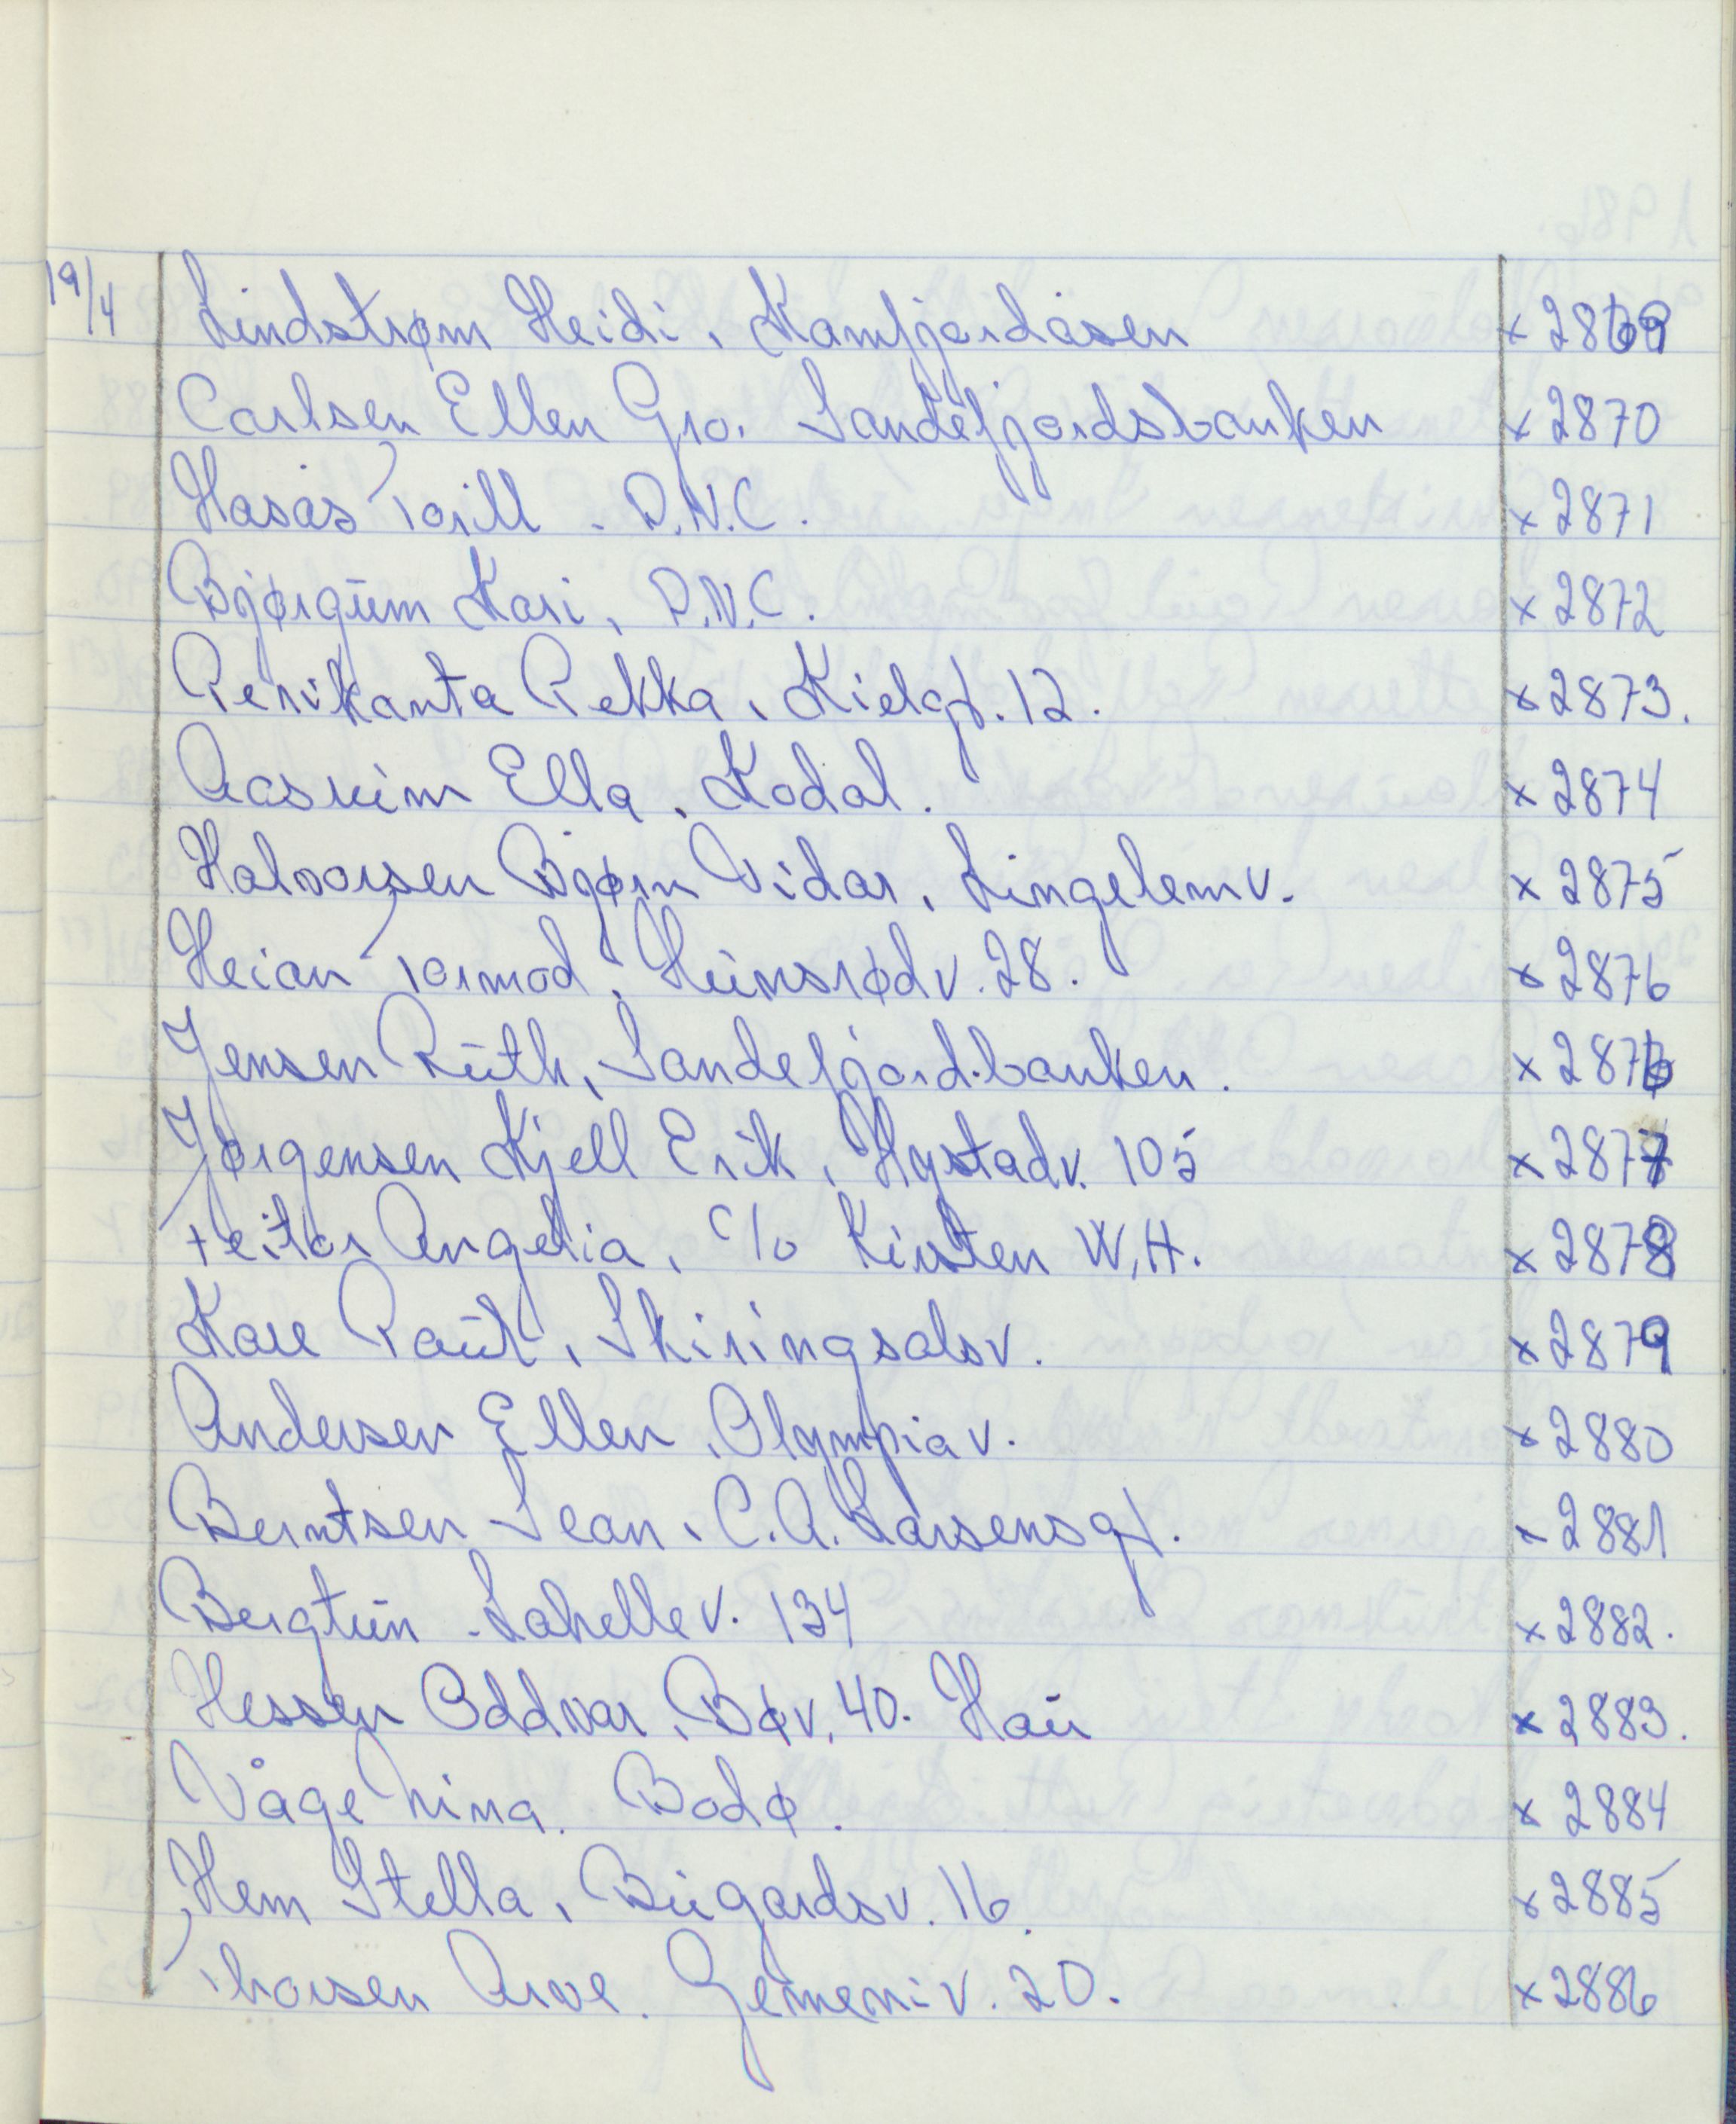 19/4 Lindstrøm Heidi, Kamfjordåsen x 2869
Carlsen Ellen Gro. Sandefjordsbanken x 2870
Hasås Torill - D.N.C. x 2871
Bjørgum Kari, D.N.C. x 2872
Penikanta Pekka, Kielgt. 12. x 2873.
Aasheim Ella, Kodal. x 2874
Halvorsen Bjørn Vidar, Lingelemv. x 2875
Heian Tormod, Heimsrødv. 28. x 2876
Jensen Ruth, Sandefjord.banken. x 2876
Jørgensen Kjell Erik, Hystadv. 105 x 2877
Feitor Angelia, c/o Kirsten W.H. x 2878
Kare Paul, Skiringsalsv. x 2879
Andersen Ellen, Olympiav. x 2880
Berntsen Sean, C.A. Larsensgt. x 2881
Bergtun - Lahellev. 134 x 2882.
Hessen Oddvar, Bøv. 40. Hau x 2883.
Våge Nina. Bodø. x 2884
Hem Stella, Bugårdsv. 16. x 2885
Thorsen Arve. Gemeniv. 20. x 2886